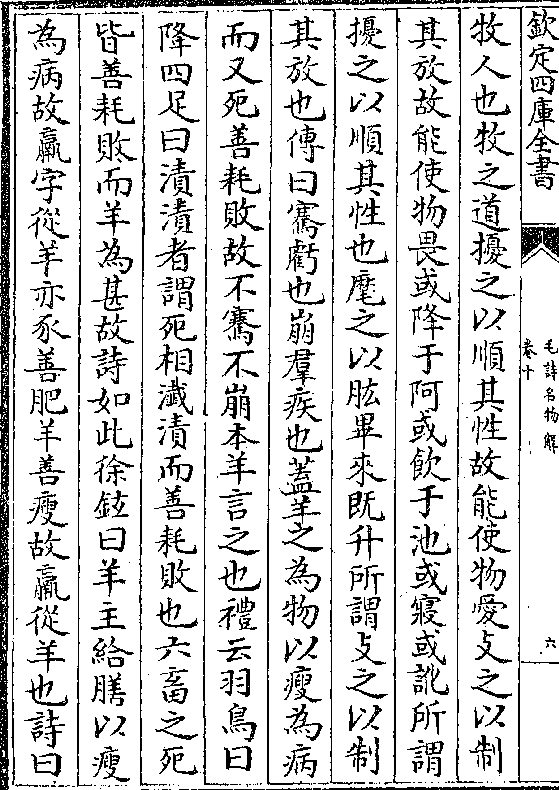 欽定四庫全書
毛詩名物解
卷十
六
牧人也牧之道擾之以順其性故能使物愛攴之以制
其放故能使物畏或降于阿或飲于池或寢或訛所謂
擾之以順其性也麾之以肱畢來既升所謂攴之以制
其放也傳曰騫虧也崩羣疾也蓋羊之為物以瘦為病
而又死善耗敗故不騫不崩本羊言之也禮云羽鳥曰
降四足曰漬漬者謂死相瀸漬而善耗敗也六畜之死
皆善耗敗而羊為甚故詩如此徐鉉曰羊主給膳以瘦
為病故羸字從羊亦豕善肥羊善瘦故羸從羊也詩曰